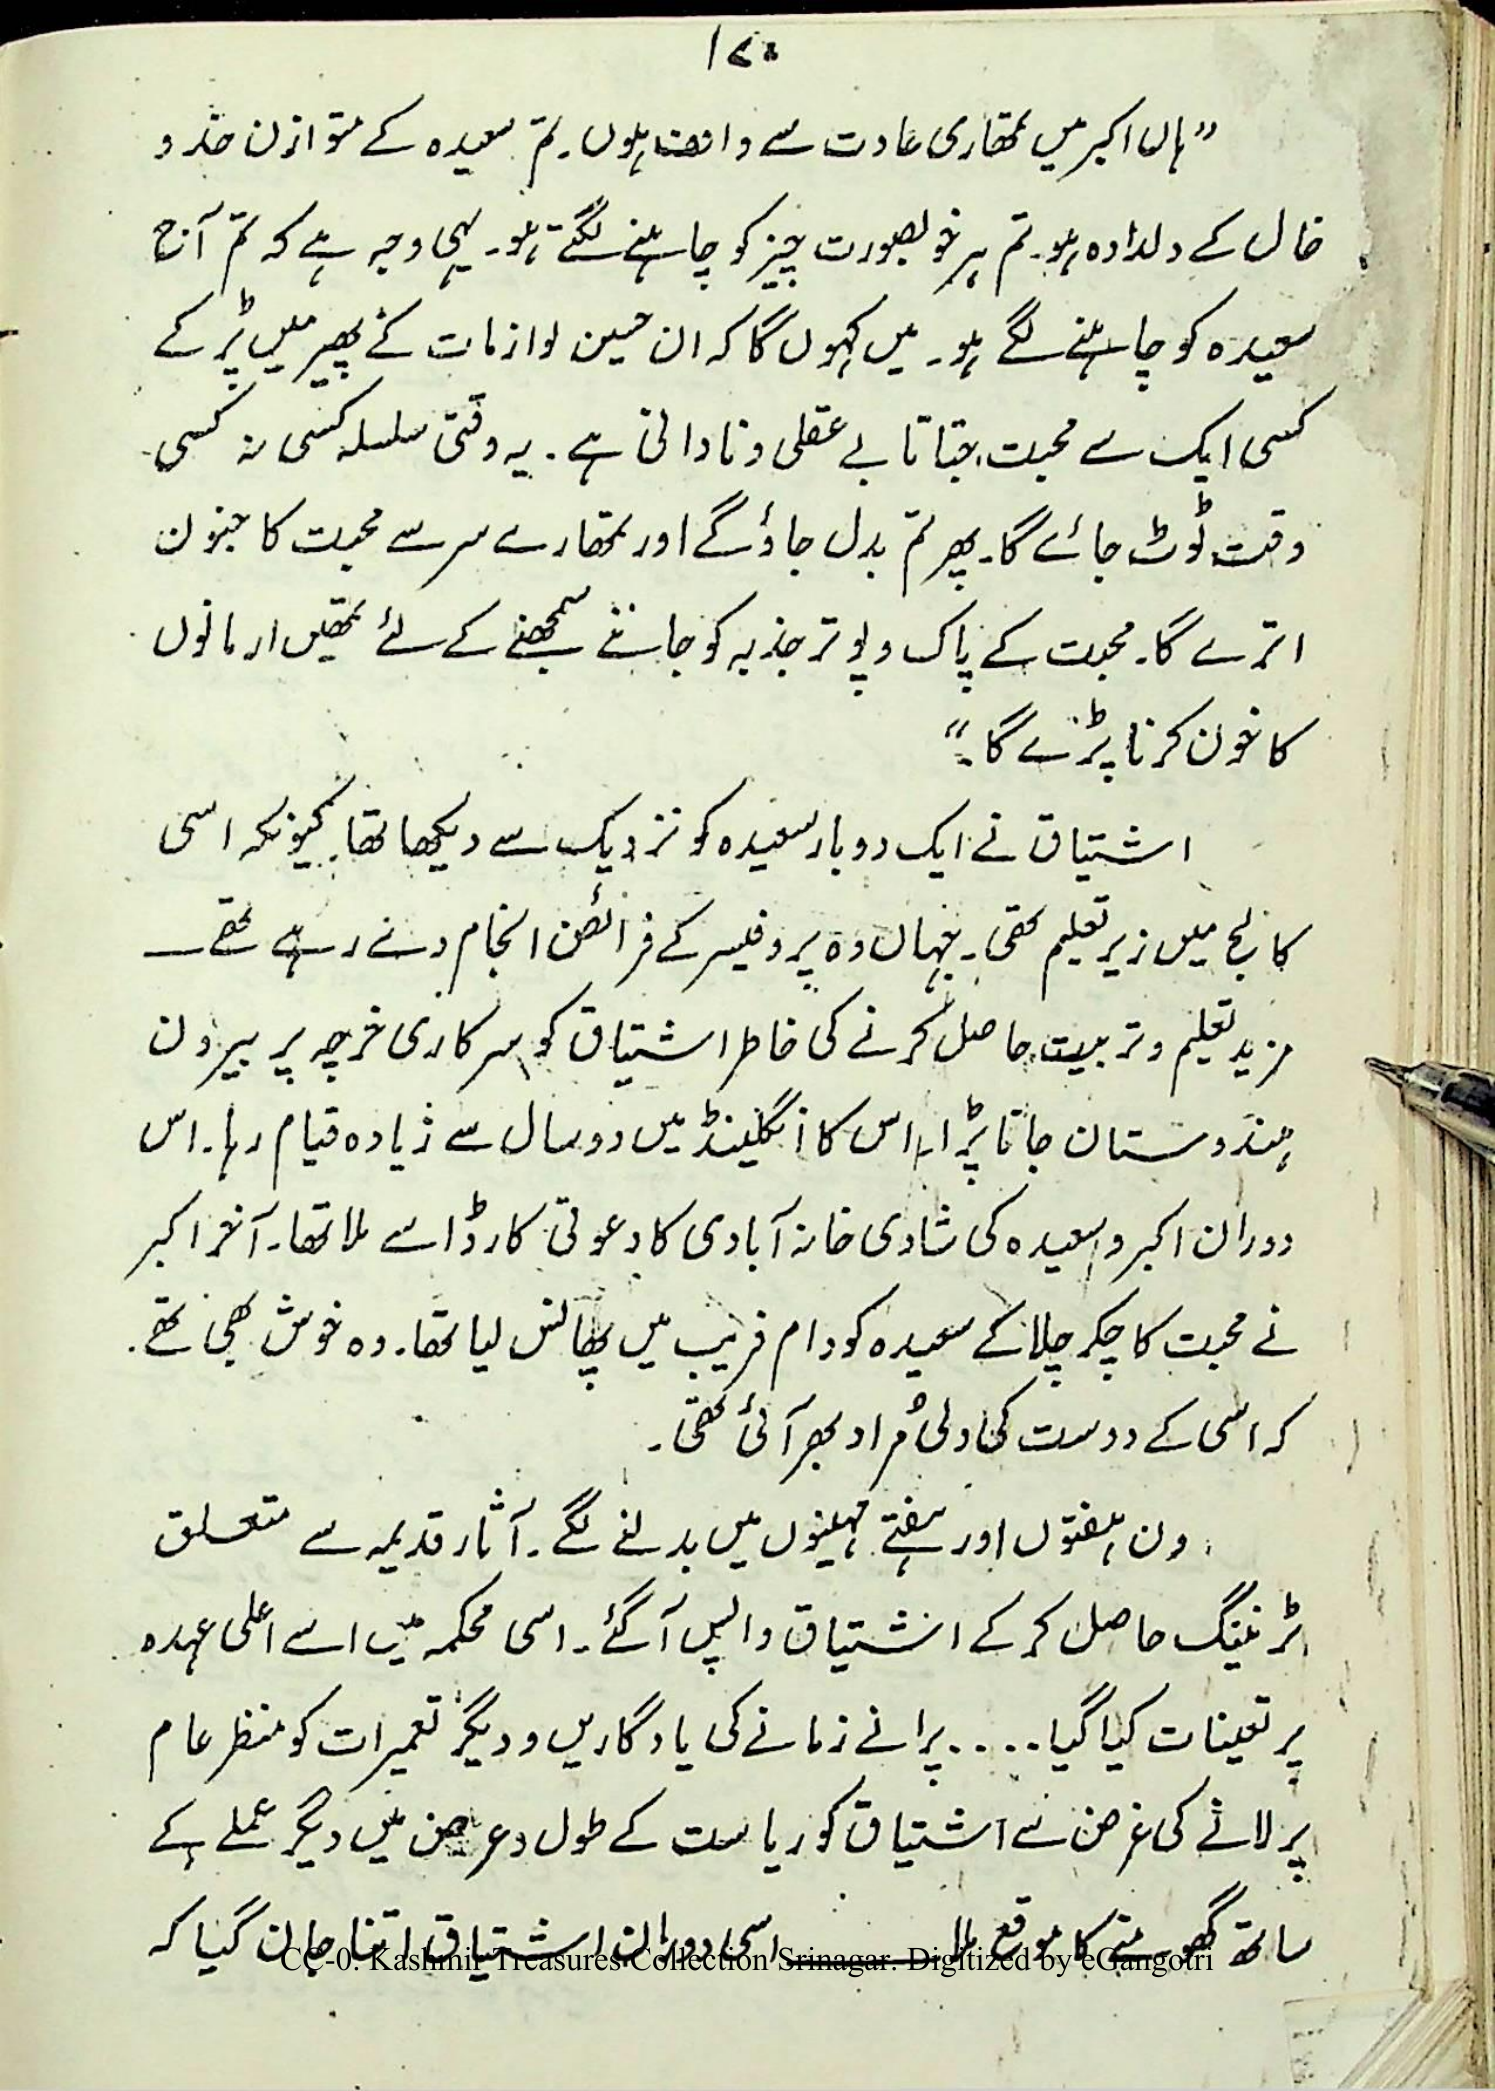 ۱۷۰
"ہاں اکبر میں تمھاری عادت سے واقف ہوں۔ تم سعیدہ کے متوازن خد و
خال کے دلدادہ ہو۔ تم ہر خوبصورت چیز کو چاہنے لگتے ہو۔ یہی وجہ ہے کہ تم آج
سعیدہ کو چاہنے لگے ہو۔ میں کہوں گا کہ ان حسین لوازمات کے پھیر میں پڑ کے
کسی ایک سے محبت جتانا بے عقلی و نادانی ہے۔ یہ وقتی سلسلہ کسی نہ کسی
وقت ٹوٹ جائے گا۔ پھر تم بدل جاؤ گے اور تمھارے سر سے محبت کا جنون
اترے گا۔ محبت کے پاک و پوتر جذبہ کو جاننے سمجھنے کے لئے تمھیں ارمانوں
کا خون کرنا پڑے گا۔"
اشتیاق نے ایک دو بار سعیدہ کو نزدیک سے دیکھا تھا کیونکہ اسی
کالج میں زیر تعلیم تھی۔ جہاں وہ پروفیسر کے فرائض انجام دے رہے تھے ــ
مزید تعلیم و تربیت حاصل کرنے کی خاطر اشتیاق کو سرکاری خرچہ پر بیرون
ہندوستان جانا پڑا۔ اس کا انگلینڈ میں دو سال سے زیادہ قیام رہا۔ اس
دوران اکبر و سعیدہ کی شادی خانہ آبادی کا دعوتی کارڈ اسے ملا تھا۔ آخر اکبر
نے محبت کا چکر چلا کے سعیدہ کو دام فریب میں پھانس لیا تھا۔ وہ خوش بھی تھے۔
کہ اسی کے دوست کی دلی مُراد بھر آئی تھی۔
دن ہفتوں اور ہفتے مہینوں میں بدلنے لگے۔ آثار قدیمہ سے متعلق
ٹرنینگ حاصل کر کے اشتیاق واپس آگئے۔ اسی محکمہ میں اسے اعلی عہدہ
پر تعینات کیا گیا..... پرانے زمانے کی یادگاریں و دیگر تعمیرات کو منظر عام
پر لانے کی غرض سے اشتیاق کو ریاست کے طول و عرض میں دیگر عملے کے
ساتھ گھومنے کا موقع ملا ــــــــ اسی دوران اشتیاق اتنا جان گیا کہ
CC-0. Kashmir Treasures Collection Srinagar. Digitized by eGangotri